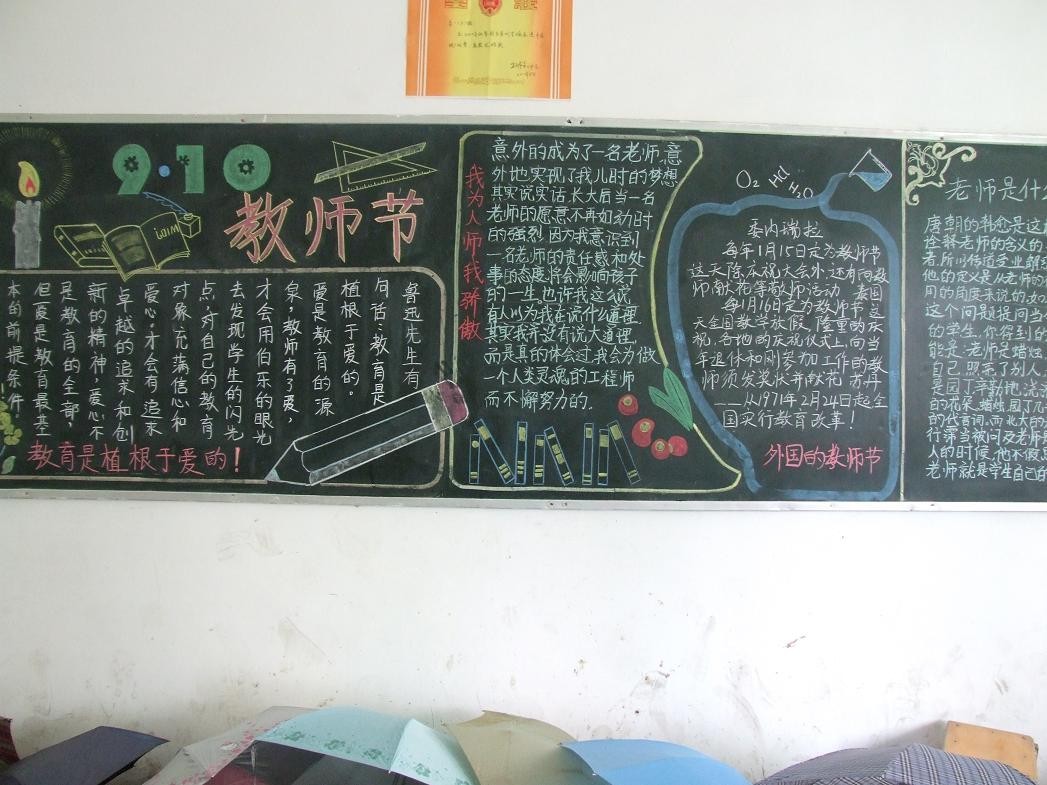 9·10
教师节
鲁迅先生有
句话:教育是
植根于爱的。
爱是教育的源
泉,教师有了爱,
才会用伯乐的眼光
去发现学生的闪光
点,对自己的教育
对象充满信心和
爱心,才会有追求
卓越的追求和创
新的精神,爱心不
是教育的全部,
但爱是教育最基
本的前提条件。
教育是植根于爱的!
我为人师我骄傲
意外的成为了一名老师,意
外地实现了我儿时的梦想
其实说实话,长大后当一名
老师的愿意不再如幼时
的强烈,因为我意识到
一名老师的责任感和处
事的态度将会影响孩子
的一生,也许我这么说
有人以为我在说什么道理
其实我并没有说大道理,
而是真的体会过,我会为做
一个人类灵魂的工程师
而不懈努力的.
O₂ HCl H₂O
委内瑞拉
每年1月15日定为教师节
这天除庆祝大会外,还有向教
师献花等敬师活动 泰国
每1月16日定为教师节,这
天全国教学放假,隆重的庆
祝,各地的庆祝仪式上,向当
年退休和刚参加工作的教
师须发奖状并献花 芳丹
——从1971年2月24日起全
国实行教育改革!
外国的教师节
老师是什
唐朝的韩愈是这
诠释老师的含义的
者,所以传道受业解惑
他的定义是从老师的
用的角度来说的,如
这个问题提问当今
的学生,你得到的
能是:老师是蜡烛,
自己,照亮了别人
是园丁,辛勤地浇
的花朵,蜡烛园丁几
的代言词,而北大的
行第当被问及老师是
人的时候,他不假思
老师就是学生自己的